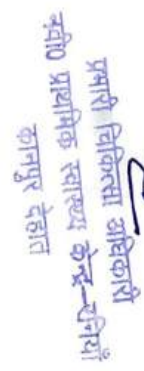 प्रभारी चिकित्सा अधिकारी
न०वी० प्राथमिक स्वास्थ्य केन्द्र-रनियाँ
कानपुर देहात